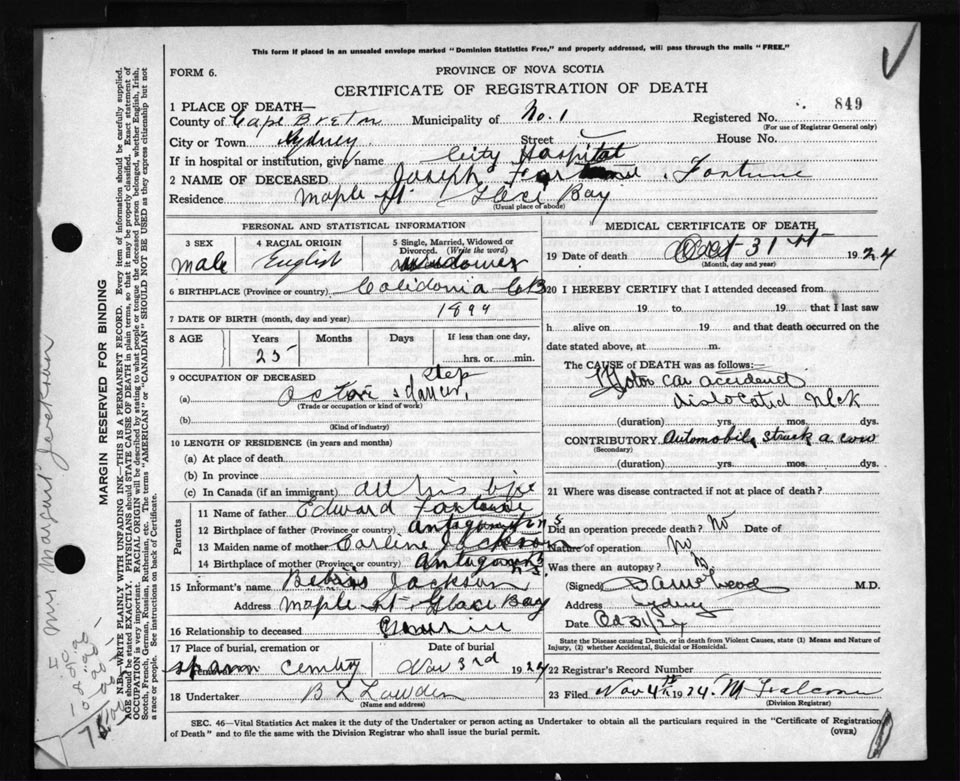 This form if placed in an unsealed envelope marked "Dominion Statistics Free," and properly addressed, will pass through the mails "FREE."
FORM 6.
PROVINCE OF NOVA SCOTIA
CERTIFICATE OF REGISTRATION OF DEATH
849
1 PLACE OF DEATH—
County of Cape Breton Municipality of No. 1 Registered No.
(For use of Registrar General only)
City or Town Sydney Street House No.
If in hospital or institution, give name City Hospital
2 NAME OF DECEASED Joseph Fortune
Residence Maple St. Glace Bay
(Usual place of abode)
PERSONAL AND STATISTICAL INFORMATION
3 SEX
male
4 RACIAL ORIGIN
English
5 Single, Married, Widowed or Divorced. (Write the word)
widower
6 BIRTHPLACE (Province or country) Calidonia CB
7 DATE OF BIRTH (month, day and year) 1899
8 AGE Years Months Days If less than one day,
25 hrs. or min.
9 OCCUPATION OF DECEASED
(a) Actor & step dancer
(Trade or occupation or kind of work)
(b)
(Kind of industry)
10 LENGTH OF RESIDENCE (in years and months)
(a) At place of death
(b) In province
(c) In Canada (if an immigrant) all his life
Parents
11 Name of father Edward Fortune
12 Birthplace of father (Province or country) Antogonish N S
13 Maiden name of mother Jackson
14 Birthplace of mother (Province or country) Antogonish N.S.
15 Informant's name Jackson
Address Maple St Glace Bay
16 Relationship to deceased
17 Place of burial, cremation or removal Date of burial
Nov 3rd 1924
18 Undertaker
(Name and address)
MEDICAL CERTIFICATE OF DEATH
19 Date of death Oct 31st 1924
(Month, day and year)
20 I HEREBY CERTIFY that I attended deceased from
19 to 19 that I last saw
h alive on 19 and that death occurred on the
date stated above, at m.
The CAUSE OF DEATH was as follows:
Motor car accident
dislocated neck
(duration) yrs. mos. dys.
CONTRIBUTORY Automobile struck a cow
(Secondary)
(duration) yrs. mos. dys.
21 Where was disease contracted if not at place of death?
Did an operation precede death? No Date of
Nature of operation No
Was there an autopsy? No
(Signed) M.D.
Address Sydney
Date Oct 31/24
State the Disease causing Death, or in death from Violent Causes, state (1) Means and Nature of Injury, (2) whether Accidental, Suicidal or Homicidal.
22 Registrar's Record Number
23 Filed Nov 4th 1924.
(Division Registrar)
SEC. 46—Vital Statistics Act makes it the duty of the Undertaker or person acting as Undertaker to obtain all the particulars required in the "Certificate of Registration of Death" and to file the same with the Division Registrar who shall issue the burial permit.
(OVER)
MARGIN RESERVED FOR BINDING
N.B.—WRITE PLAINLY WITH UNFADING INK—THIS IS A PERMANENT RECORD. Every item of information should be carefully supplied.
AGE should be stated EXACTLY. PHYSICIANS should STATE CAUSE OF DEATH in plain terms, so that it may be properly classified. Exact statement of
OCCUPATION is very important. RACIAL ORIGIN will be described by stating to what people or tongue the deceased person belonged, whether English, Irish,
Scotch, French, German, Russian, Ruthenian, etc. The terms "AMERICAN" or "CANADIAN" SHOULD NOT BE USED as they express citizenship but not
a race or people. See instructions on back of Certificate.